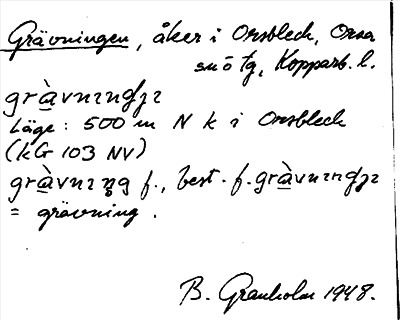 Grävningen, åker i Orsbleck, Orsa
sn ö tg, Kopparb. l.
Läge: 500 m N k i Orsbleck
(kG 103 NV)
f., best. f.
= grävning.
B. Granholm 1948.